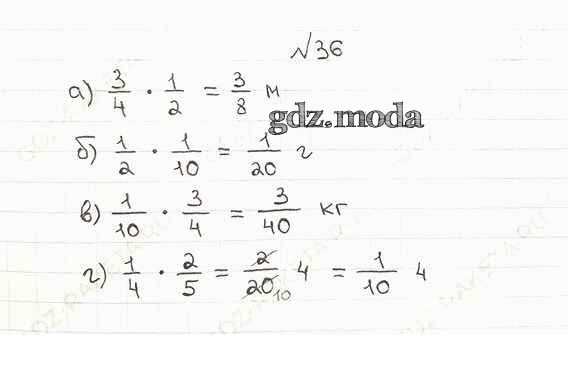 №36
а) 3/4 · 1/2 = 3/8 м
gdz.moda
б) 1/2 · 1/10 = 1/20 г
в) 1/10 · 3/4 = 3/40 кг
г) 1/4 · 2/5 = 2/20 10 ч = 1/10 ч